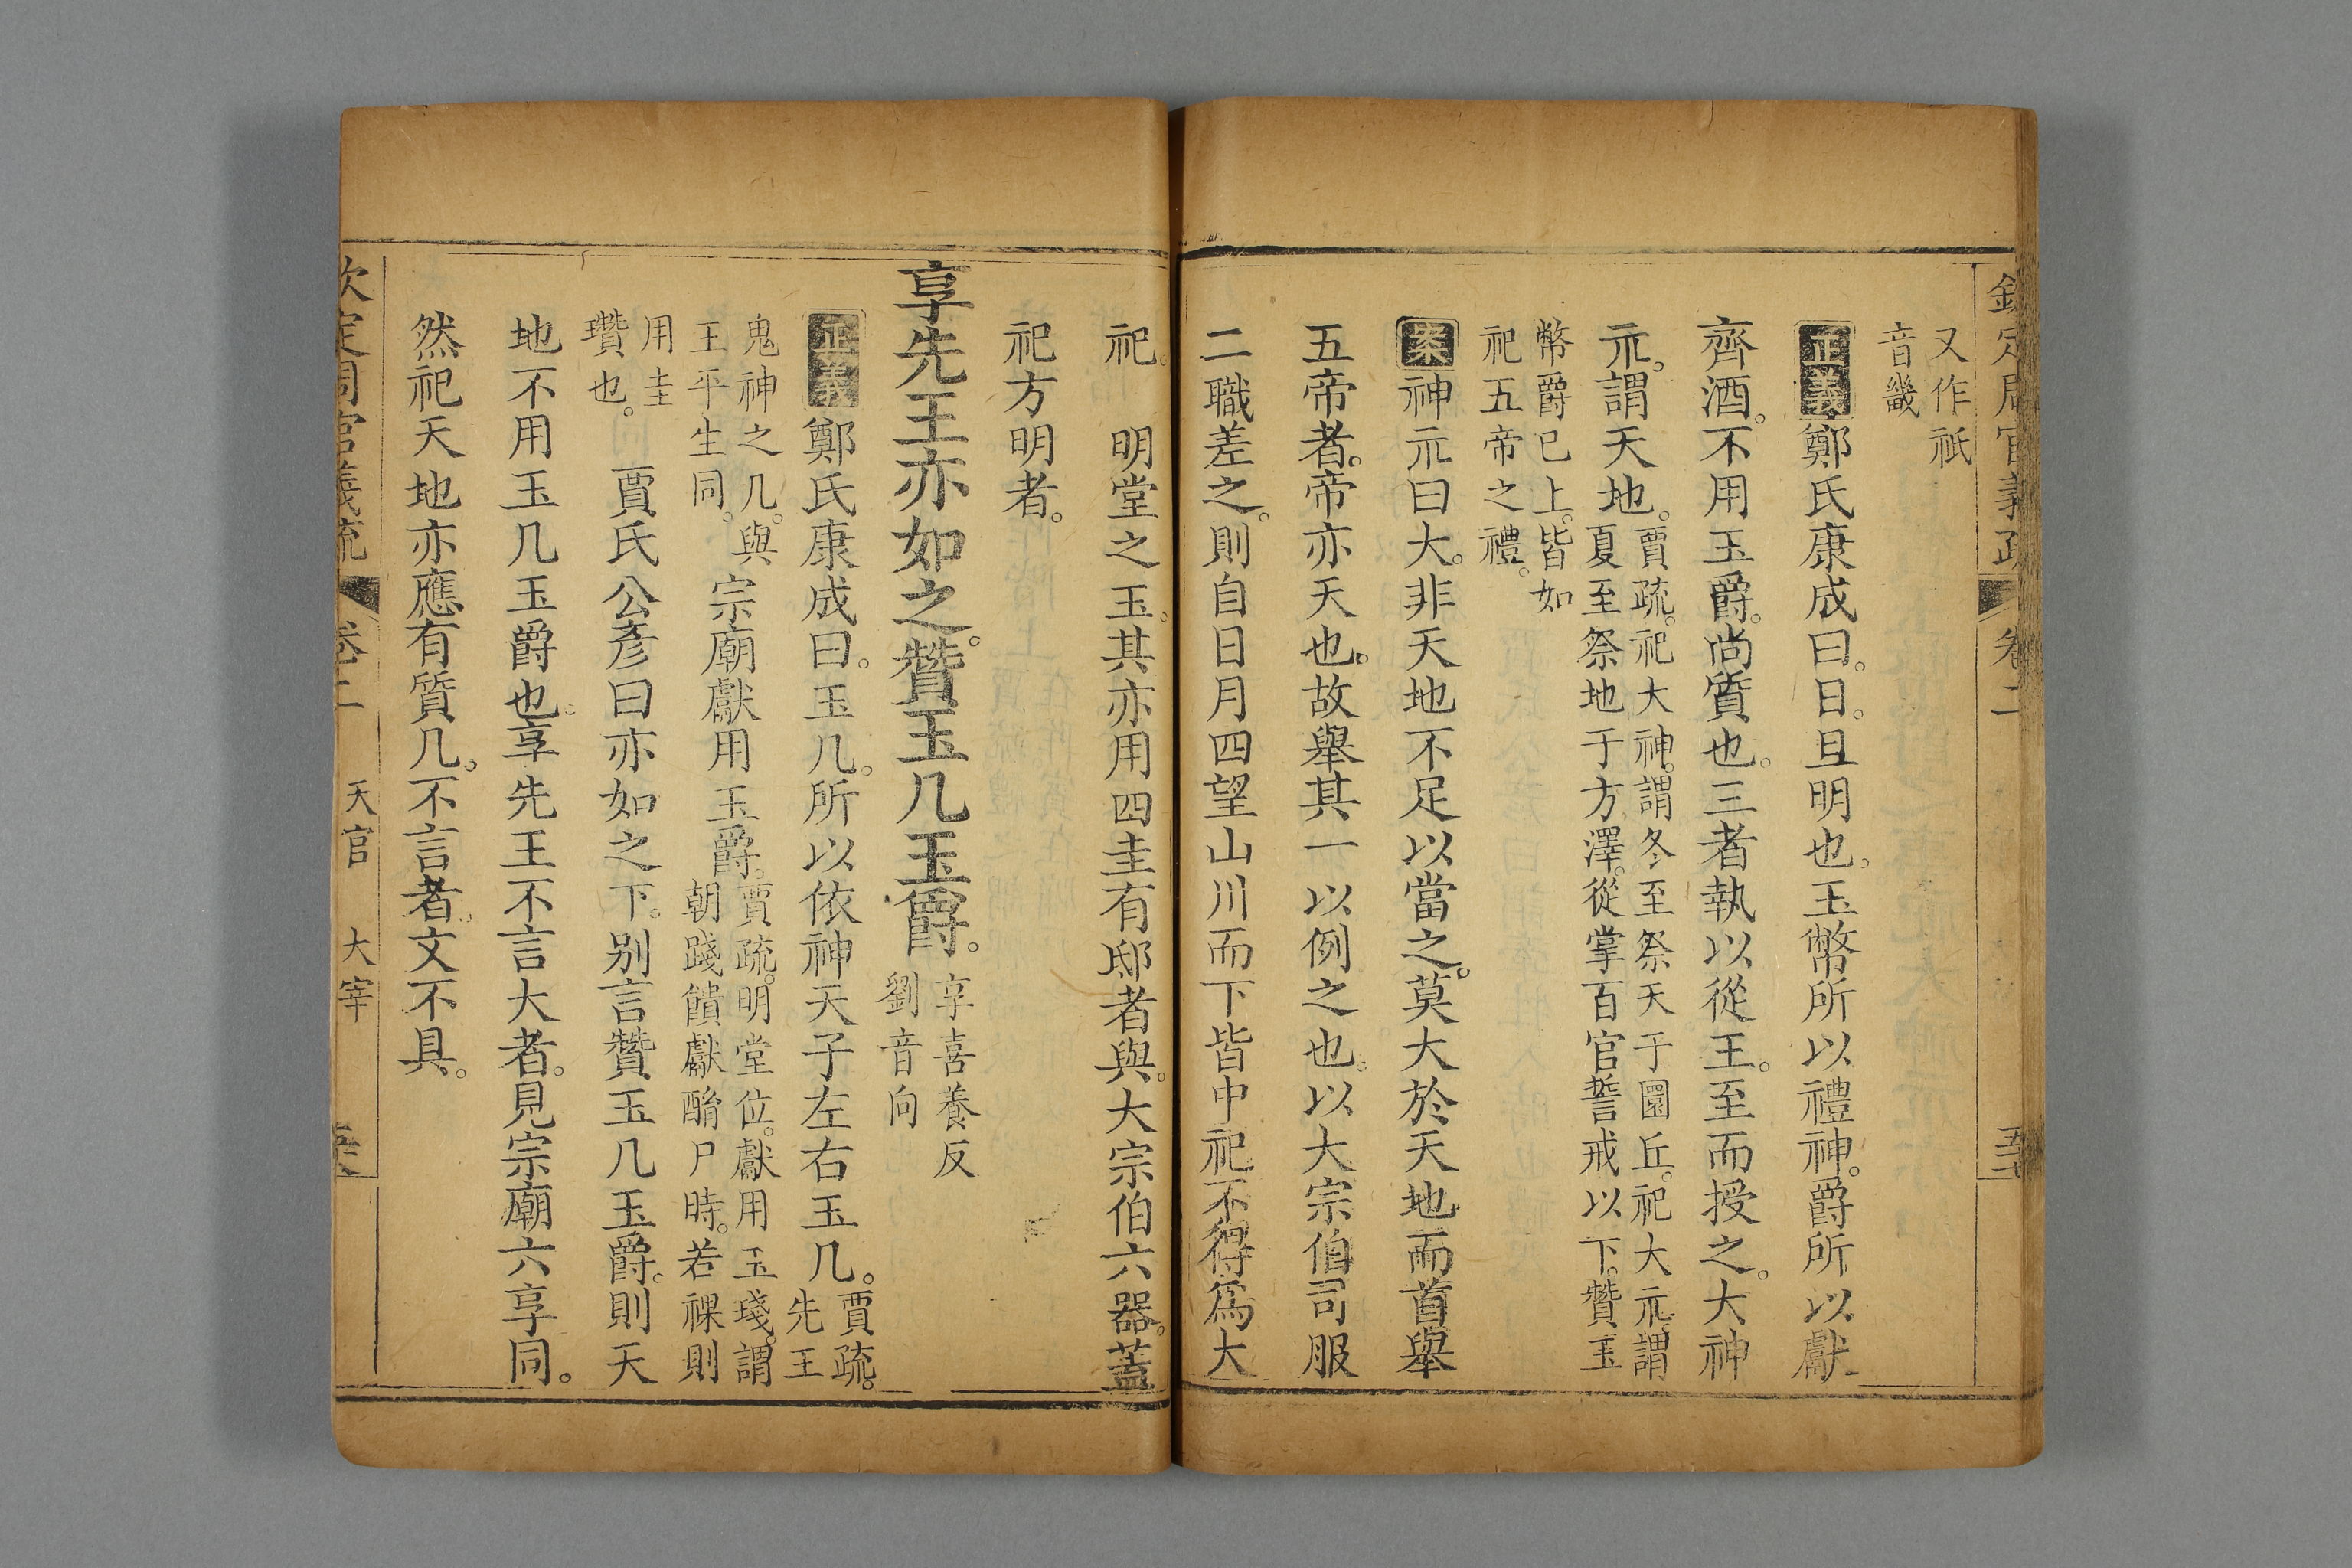 欽定周官義疏 卷二
又作祇
音畿
正義鄭氏康成曰。日。旦明也。玉幣所以禮神。爵所以獻
齊酒。不用玉爵。尚質也。三者執以從王。至而授之。大神
示。謂天地。賈疏。祀大神。謂冬至祭天于圜丘。祀大示。謂
夏至祭地于方澤。從掌百官誓戒以下。贊玉
幣爵已上。皆如
祀五帝之禮。
案神示曰大。非天地不足以當之。莫大於天地而首舉
五帝者。帝亦天也。故舉其一以例之也。以大宗伯司服
二職差之。則自日月四望山川而下皆中祀不得爲大
祀。 明堂之玉。其亦用四圭有邸者與。大宗伯六器。蓋
祀方明者。
享先王亦如之。贊玉几玉爵。享喜養反
劉音向
正義鄭氏康成曰。玉几。所以依神天子左右玉几。賈疏。
先王
鬼神之几。與
王平生同。
宗廟獻用玉爵。賈疏。明堂位。獻用玉琖。謂
朝踐饋獻酳尸時。若祼則
用圭
瓚也。
賈氏公彥曰亦如之下。别言贊玉几玉爵。則天
地不用玉几玉爵也。享先王不言大者。見宗廟六享同。
然祀天地亦應有質几。不言者。文不具。
欽定周官義疏 卷二 天官 大宰